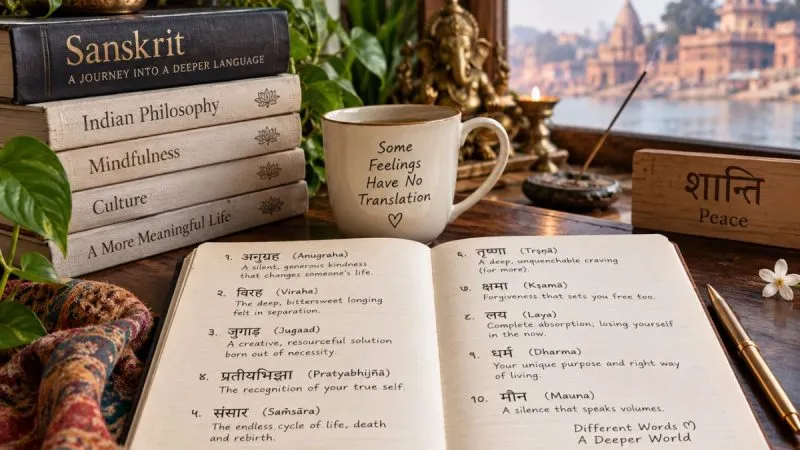 Sanskrit
A JOURNEY INTO A DEEPER LANGUAGE
Indian Philosophy
Mindfulness
Culture
A More Meaningful Life
Some
Feelings
Have No
Translation
♡
शान्ति
Peace
१. अनुग्रह (Anugraha)
A silent, generous kindness
that changes someone's life.
२. विरह (Viraha)
The deep, bittersweet longing
felt in separation.
३. जुगाड़ (Jugaad)
A creative, resourceful solution
born out of necessity.
४. प्रतीयभिझा (Pratyabhijñā)
The recognition of your true self.
५. संसार (Saṁsāra)
The endless cycle of life, death
and rebirth.
६. तृष्णा (Tṛṣṇā)
A deep, unquenchable craving
(for more).
७. क्षमा (Kṣamā)
Forgiveness that sets you free too.
८. लय (Laya)
Complete absorption, losing yourself
in the now.
९. धर्म (Dharma)
Your unique purpose and right way
of living.
10. मौन (Mauna)
A silence that speaks volumes.
Different Words ♡
A Deeper World